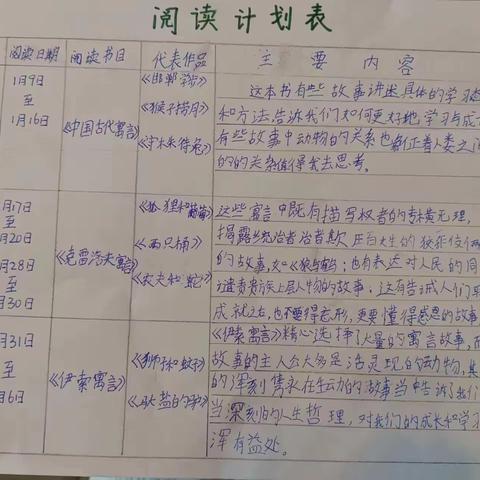 阅读计划表
阅读日期 阅读书目 代表作品 主要内容
1月9日
至
1月16日
《中国古代寓言》
《邯郸学步》
《猴子捞月》
《守株待兔》
这本书有些故事讲述具体的学习态
和方法,告诉我们如何更好地学习与成
有些故事中动物的关系也象征着人类之间
的的关系值得我去思考。
月17日
至
月20日
月28日
至
月30日
《克雷洛夫寓言》
《狐狸和葡萄》
《两只桶》
《农夫和蛇》
这些寓言中既有描写权者的专横无理,
揭露统治者治者欺压百姓的狡乖
的故事,如《狼与鹤》;也有表达对人民的同
谴责贵族上层人物的故事,这有告诫人们
成就之后,也不要得意忘形,更要懂得感恩的故事
月31日
至
月6日
《伊索寓言》
《狮子和蚊子》
《驮盐的驴》
《伊索寓言》精心选择了大量的寓言故事,
故事的主人公大多是活灵现的动物,其
的深刻隽永在生动的故事当中告诉了我们
当深刻的人生哲理,对我们的成长和学习
浑有益处。